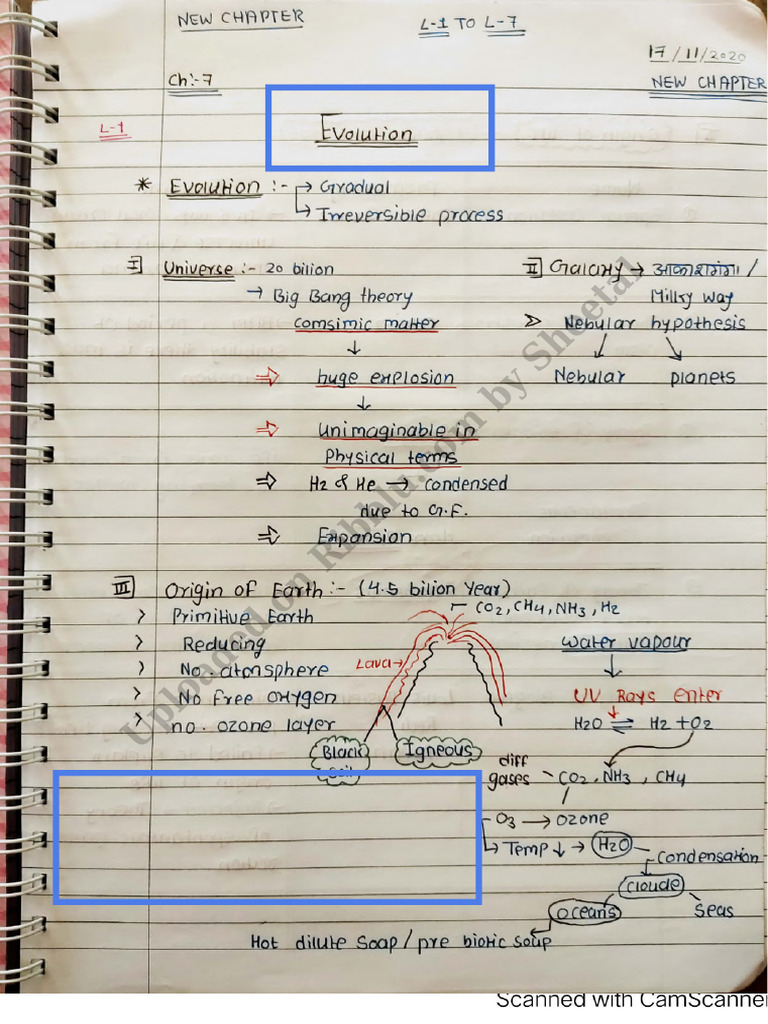 NEW CHAPTER
L-1 TO L-7
17/11/2020
Ch:-7
NEW CHAPTER
L-1
Evolution
* Evolution :- → Gradual
→ Irreversible process
I] Universe :- 20 bilion
→ Big Bang theory
Comsimic matter
↓
⇒ huge explosion
↓
⇒ Unimaginable in
Physical terms
⇒ H2 & He → condensed
due to G.F.
⇒ Expansion
II] Galaxy → आकाशगंगा /
Milky way
> Nebular hypothesis
Nebular planets
III] Origin of Earth :- (4.5 bilion Year)
> Primitive Earth
> Reducing
> No. atmsphere
> No Free oxygen
> no. ozone layer
CO2, CH4, NH3, H2
Lava →
Black Soil
Igneous
Water vapour
↓
UV Rays enter
H2O ⇌ H2 + O2
diff gases - CO2, NH3, CH4
O3 → Ozone
→ Temp ↓ → H2O - Condensation
cloude
oceans Seas
Hot dilute soap / pre biotic soup
Uploaded on Ribblu.com by Sheetal
Scanned with CamScanner